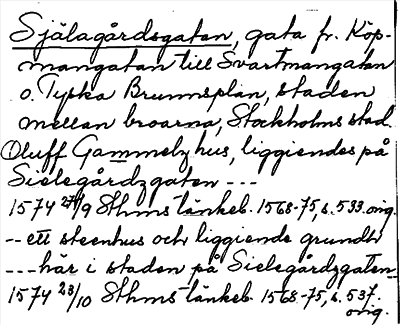 Själagårdsgatan, gata fr. Köp-
mangatan till Svartmangatan
o. Tyska Brunnsplan, staden
mellan broarna, Stockholms stad.
Oluff Gammelz hus, liggiendes på
Sielegårdzgaten ---
1574 27/9 Sthms tänkeb. 1568-75, s. 533. orig.
-- ett steenhus och liggiende grundh
--- här i staden på Sielegårdzgatten
1574 23/10 Sthms tänkeb. 1568-75, s. 537.
orig.